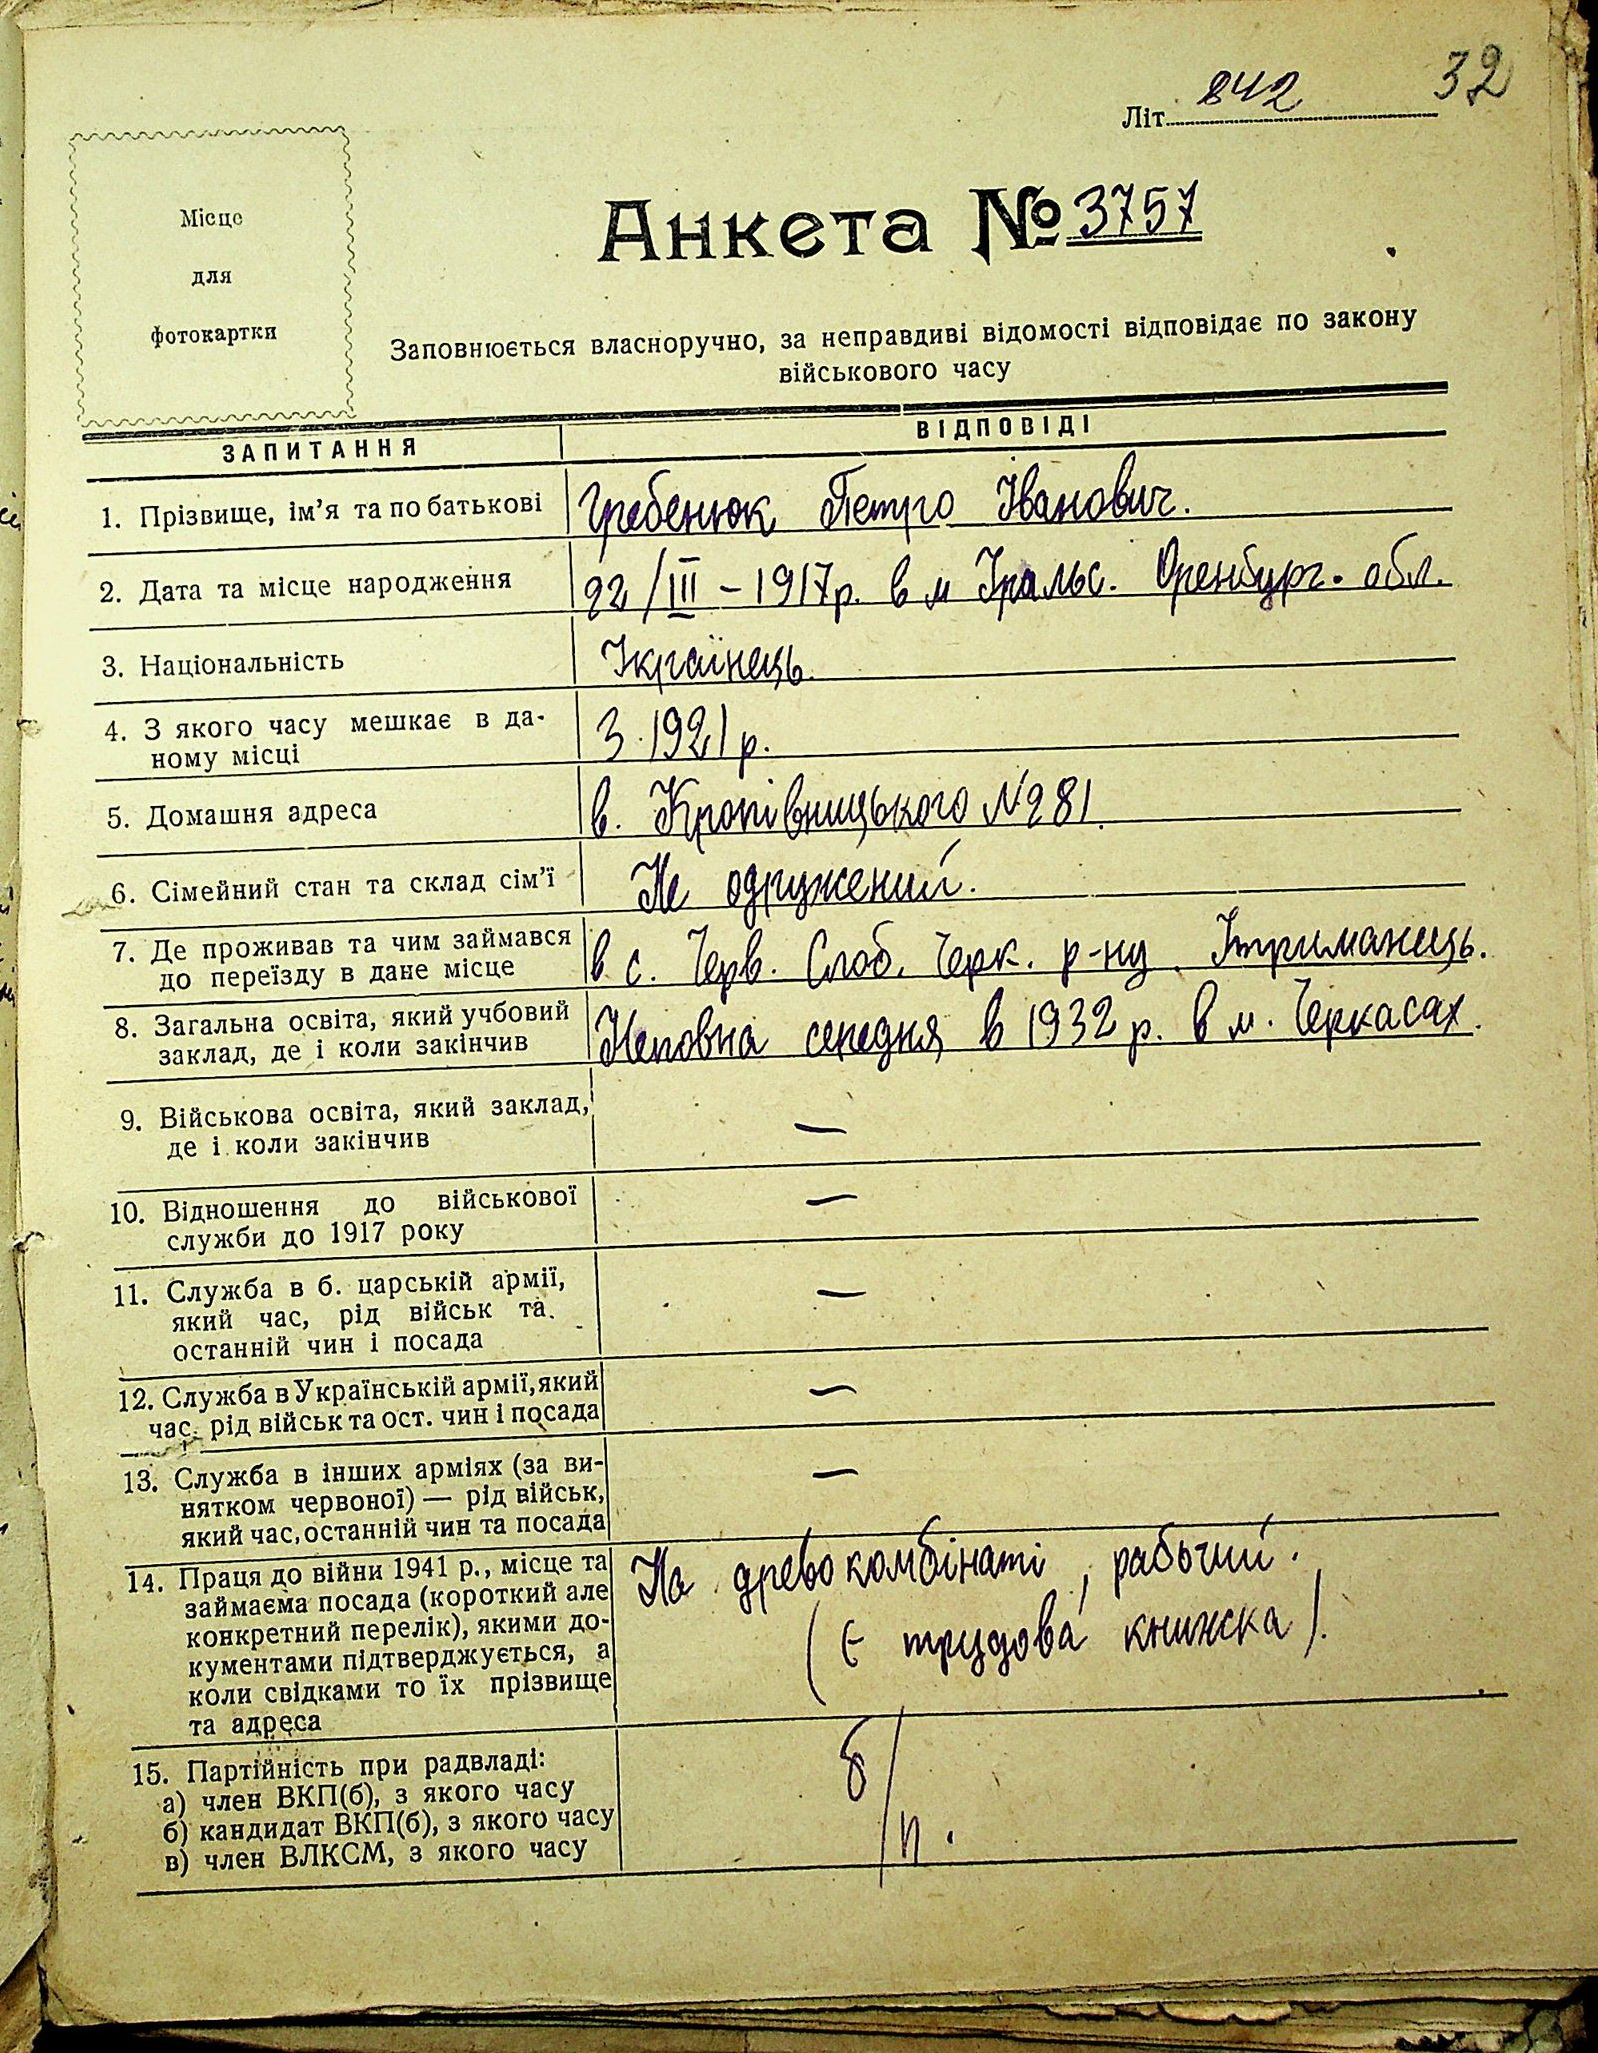 32
Літ. 842
Місце
для
фотокартки
Анкета № 3757
Заповнюється власноручно, за неправдиві відомості відповідає по закону
військового часу
ЗАПИТАННЯ ВІДПОВІДІ
1. Прізвище, ім'я та по батькові Гребенюк Петро Іванович.
2. Дата та місце народження 22/III – 1917р. в м Уральс. Оренбург. обл.
3. Національність Українець.
4. З якого часу мешкає в да-
ному місці З 1921 р.
5. Домашня адреса в. Кропівницького № 281.
6. Сімейний стан та склад сім'ї Не одружений.
7. Де проживав та чим займався в с. Черв. Слоб. Черк. р-ну. Утриманець.
до переїзду в дане місце
8. Загальна освіта, який учбовий Неповна середня в 1932 р. в м. Черкасах.
заклад, де і коли закінчив
9. Військова освіта, який заклад, —
де і коли закінчив
10. Відношення до військової —
служби до 1917 року
11. Служба в б. царській армії, —
який час, рід військ та
останній чин і посада
12. Служба в Українській армії, який —
час, рід військ та ост. чин і посада
13. Служба в інших арміях (за ви- —
нятком червоної) — рід військ,
який час, останній чин та посада
14. Праця до війни 1941 р., місце та На древокомбінаті, рабочий.
займаєма посада (короткий але
конкретний перелік), якими до- (є трудова книжка).
кументами підтверджується, а
коли свідками то їх прізвище
та адреса
15. Партійність при радвладі: б/п.
а) член ВКП(б), з якого часу
б) кандидат ВКП(б), з якого часу
в) член ВЛКСМ, з якого часу